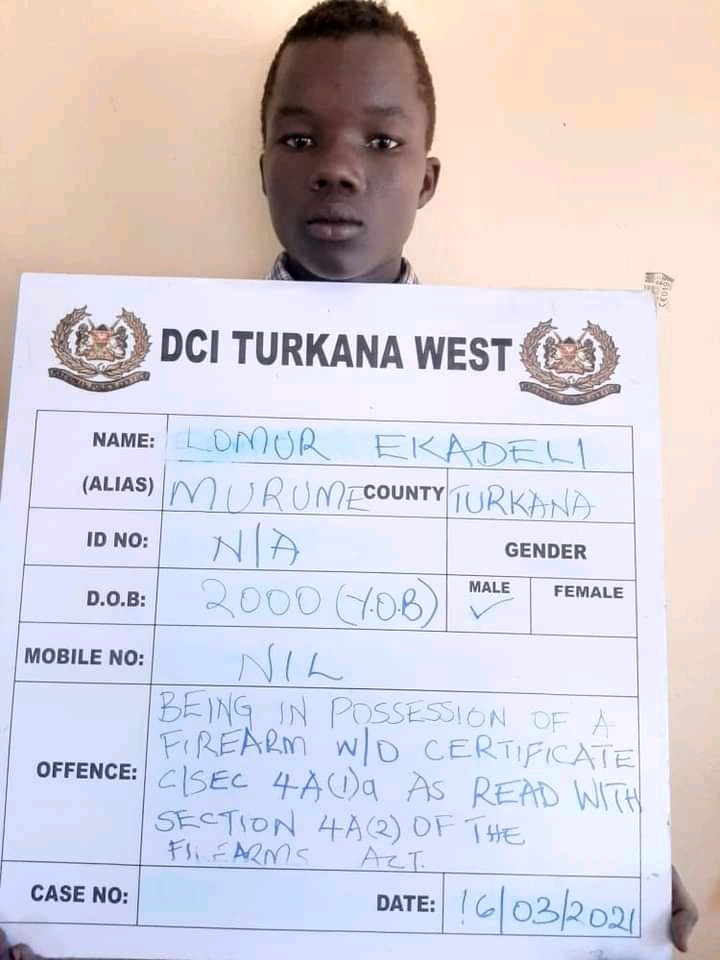 DCI TURKANA WEST
NAME: LOMUR EKADELI
(ALIAS) MURUME COUNTY TURKANA
ID NO: N/A GENDER
D.O.B: 2000 (Y.O.B) MALE ✓ FEMALE
MOBILE NO: NIL
OFFENCE: BEING IN POSSESSION OF A
FIREARM W/O CERTIFICATE
C/SEC 4A(1)a AS READ WITH
SECTION 4A(2) OF THE
FIREARMS ACT.
CASE NO: DATE: 16/03/2021